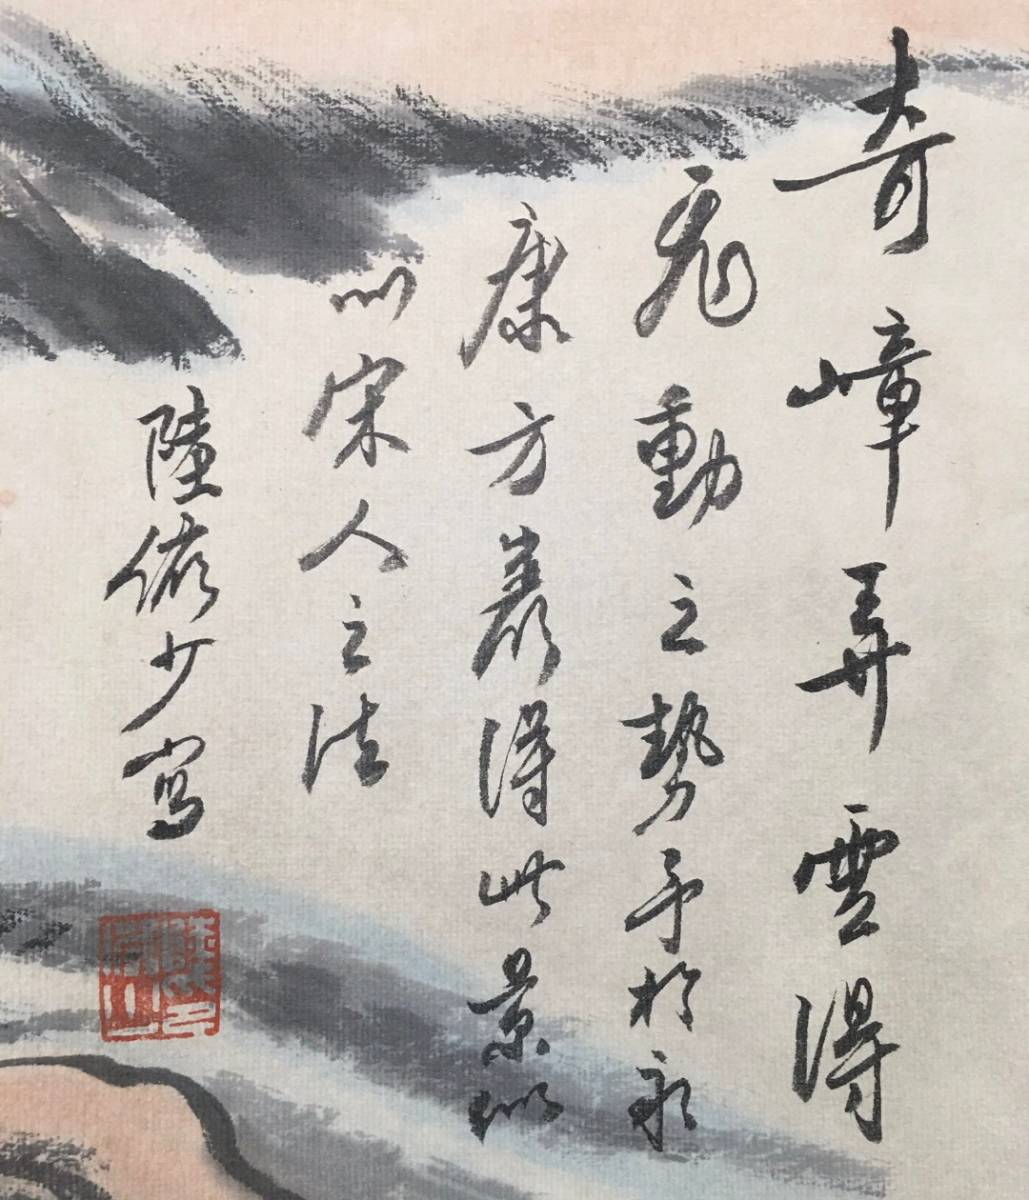 奇嶂弄雲得
飛動之勢予於永
康方巖得此景似
以宋人之法
陸儼少寫